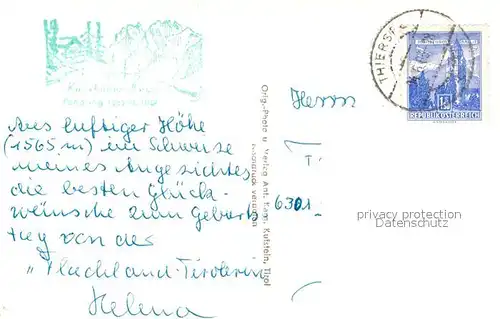 Aus luftiger Höhe
(1565 m) im Schweiße
meines Angesichtes
die besten Glück-
wünsche zum Geburts-
tag von der
"Flachland-Tirolerin"
Helena
Orig.-Photo u. Verlag Ant. Karg, Kufstein, Tirol
Nachdruck verboten
Herrn
6301
THIERSEE
REPUBLIK ÖSTERREICH
privacy protection
Datenschutz